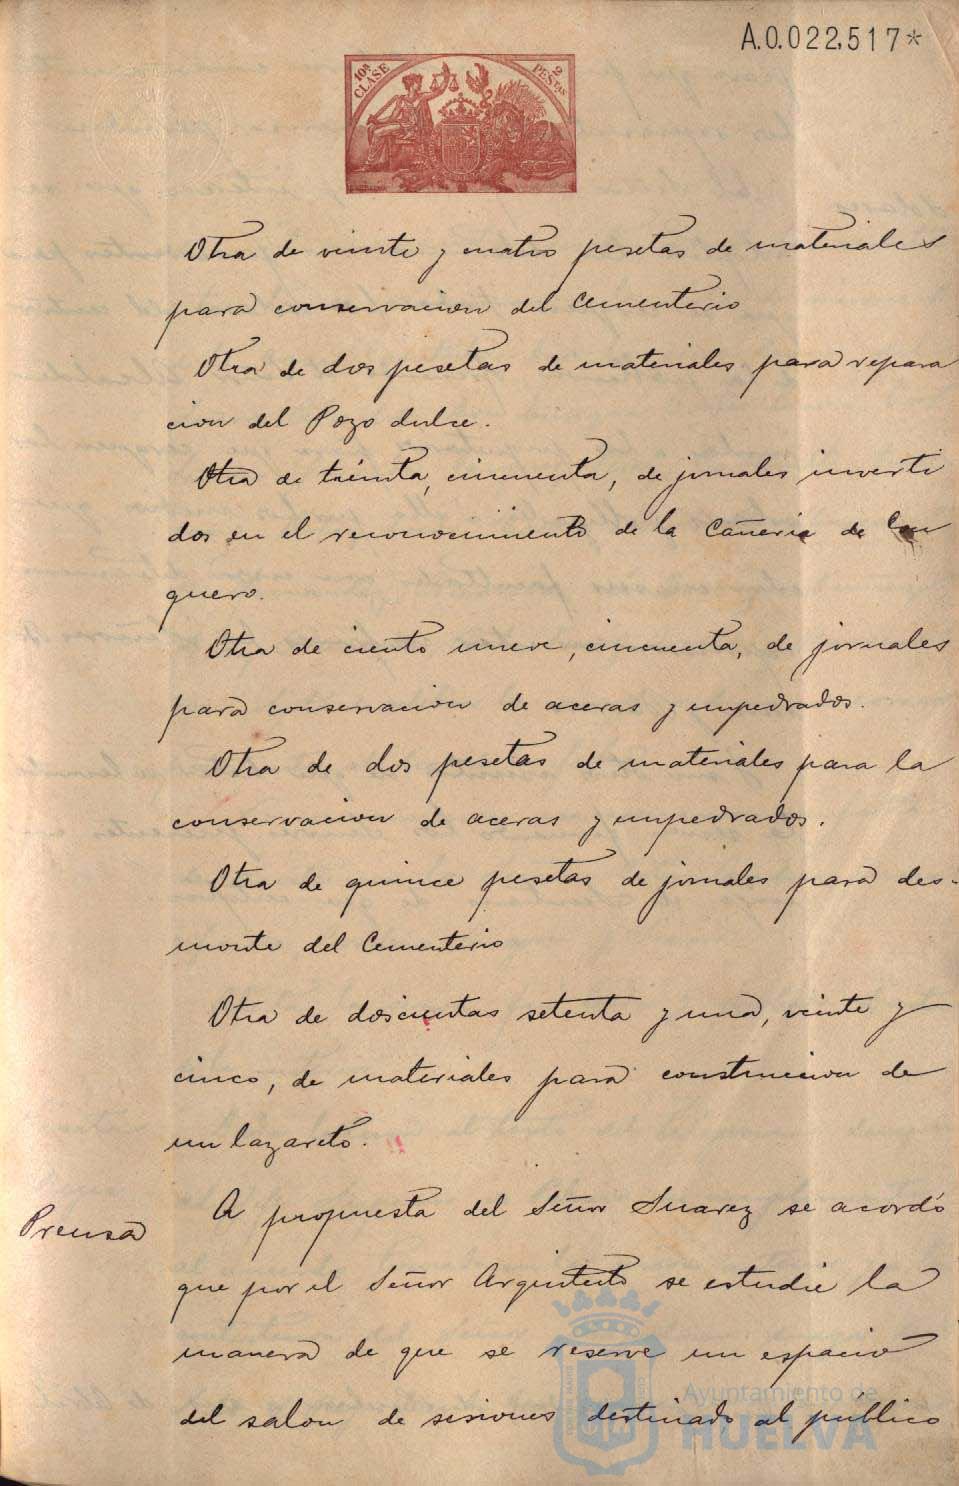 A.0.022,517*
10ª CLASE
2 PESTAS
Otra de veinte y cuatro pesetas de materiales
para conservacion del Cementerio
Otra de dos pesetas de materiales para repara
cion del Pozo dulce.
Otra de treinta, cincuenta, de jornales inverti
dos en el reconocimiento de la Cañeria de Con
quero.
Otra de ciento nueve, cincuenta, de jornales
para conservacion de aceras y empedrados.
Otra de dos pesetas de materiales para la
conservacion de aceras y empedrados.
Otra de quince pesetas de jornales para des-
monte del Cementerio
Otra de doscientas setenta y una, veinte y
cinco, de materiales para construccion de
un lazareto.
Prensa
A propuesta del Señor Suarez se acordó
que por el Señor Arquitecto se estudie la
manera de que se reserve un espacio
del salon de sesiones destinado al público
Ayuntamiento de
HUELVA